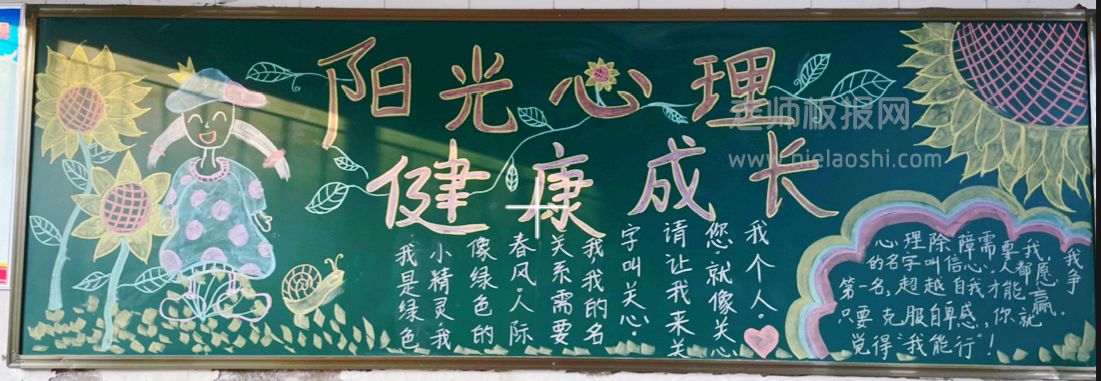 阳光心理
健康成长
老师板报网
www.nielaoshi.com
我是绿色
小精灵我
像绿色的
春风。人际
关系需要
我我的名
字叫关心。
请让我来关
您.就像关心
我个人。
心理除障需要我,我
的名字叫信心.人都愿争
第一名,超越自我才能赢.
只要克服自卑感,你就
觉得"我能行"!